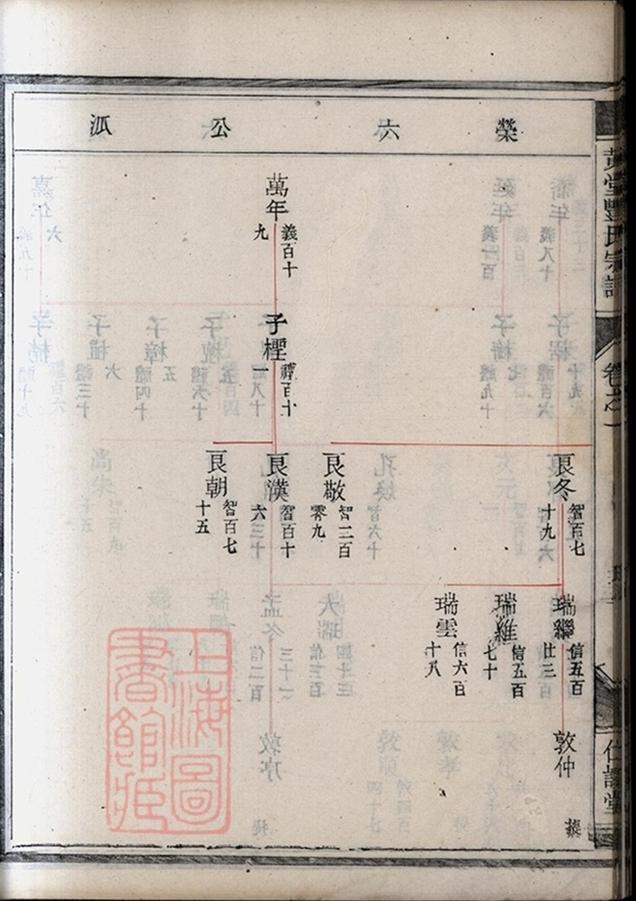 榮六公派
萬年
義百十九
子檉
禮百十一
艮冬
智百七十九
艮敬
智二百零九
艮漢
智百十六
艮朝
智百七十五
瑞繼
信五百廿三
瑞維
信五百七十
瑞雲
信六百十八
敦仲
黃堂豐氏宗譜
卷之一
上海圖書館藏